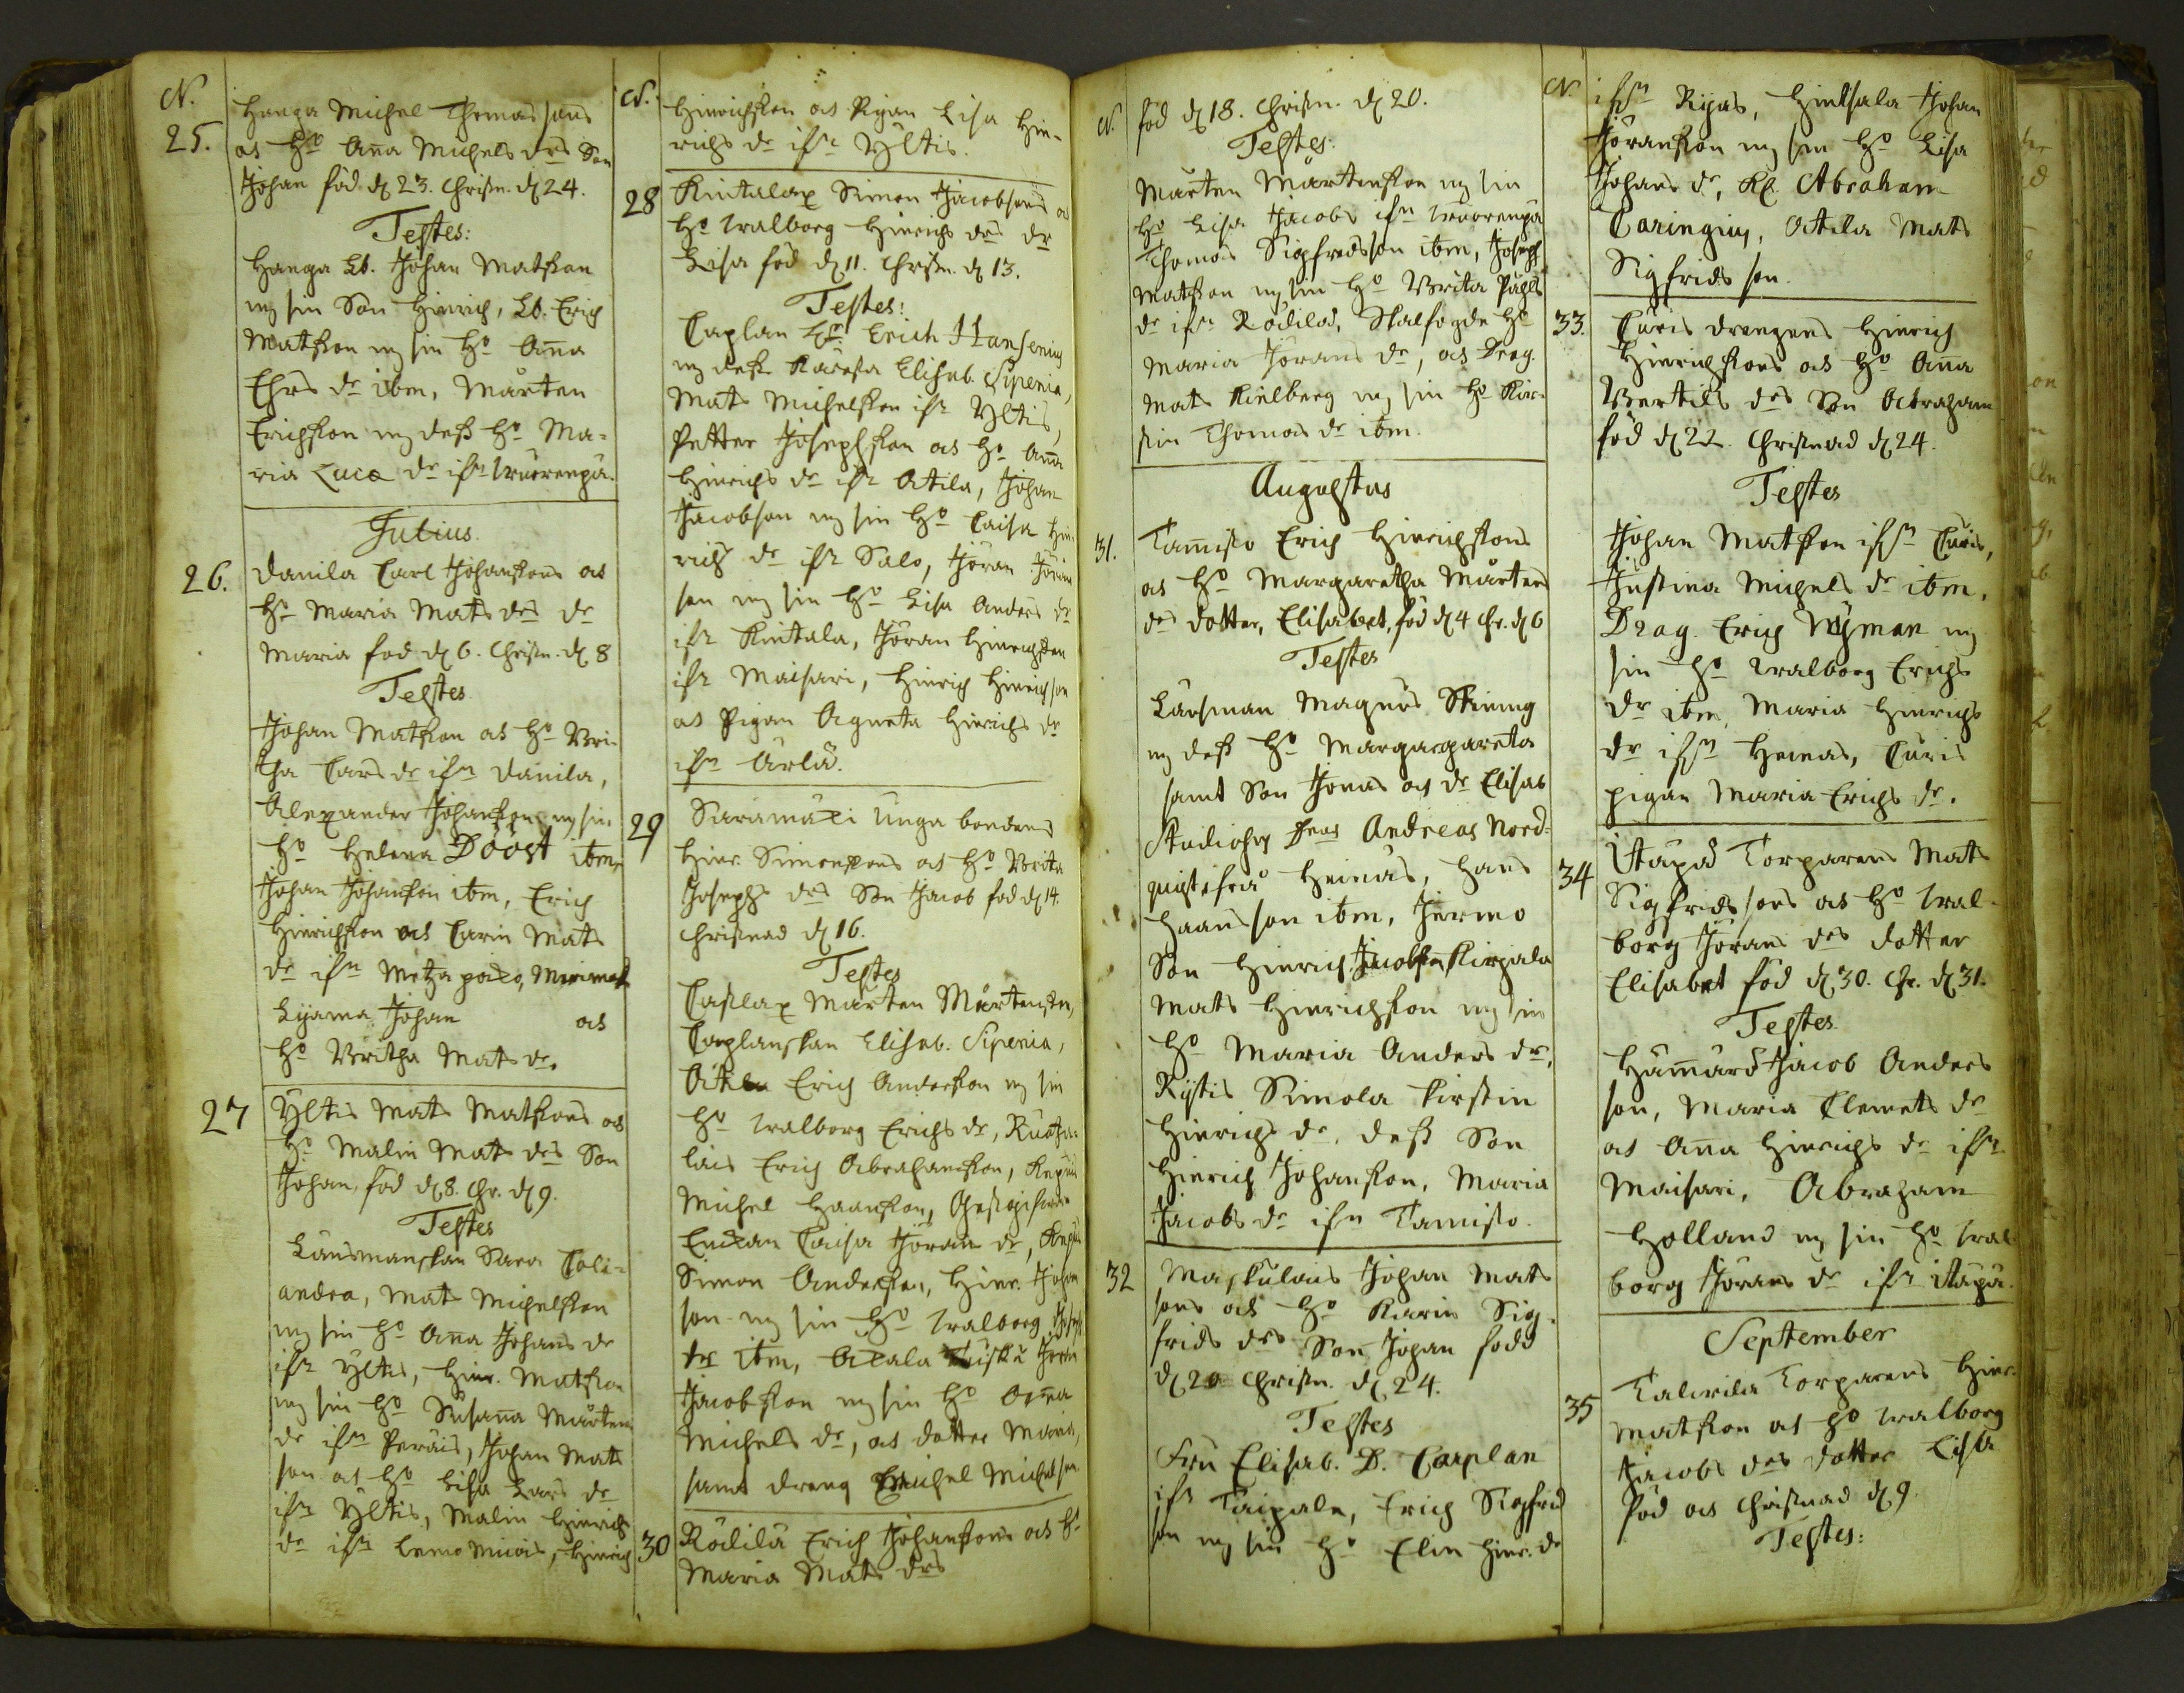 N.
25. Hanga Michel Thomas sons
och Ho Aña Michels drs Son
Johan föd d 23. Christn. d 24.
Testes:
Hanga Lb. Johan Matsson
m sin Son Hinrich, Lb. Erich
Matsson m sin Ho Aña
Ehrs dr ibm, Mårten
Erichsson m dess Ho Ma-
ria Lucæ dr ifrn
Julius.
26. Danila Carl Johanssons och
Ho Maria Mats drs dr
Maria föd d 6. Christn. d 8
Testes
Johan Matsson och Ho Bri-
tha Lars dr ifrn Danila,
Alexander Johansson m sin
Ho Helena Dööst ibm,
Johan Johansson ibm, Erich
Hinrichsson och Carin Mats
dr ifrn
Lijama Johan och
Ho Britha Mats dr.
27 Yltis Mats Matssons och
Ho Malin Mats drs Son
Johan, föd d 8. Chr. d 9.
Testes
Länsmanskan Sara Coli-
andra, Mats Michelsson
m sin Ho Aña Johans dr
ifr Yltis, Hinr. Matsson
m sin Ho Susaña Mårtens
dr ifrn Peräis, Johan Mats
son och Ho Lisa Lars dr
ifr Yltis, Malin Hinrichs
dr ifrn Hinrich
N.
Hinrichsson och Pigan Lisa Hin-
richs dr ifr Yltis.
28 Kintalax Simon Jacobsons och
Ho Walborg Hinrichs drs dr
Lisa föd d 11. Christn. d 13.
Testes:
Caplan Hr. Erich Hansenius
m dess Käresta Elisab. Sipenia,
Mats Michelsson ifr Yltis,
Petter Josephsson och Ho Aña
Hinrichs dr ifr Atila, Johan
Jacobson m sin Ho Caisa Hin-
richs dr ifr Salo, Jöran Jöran
son m sin Ho Lisa Anders dr
ifr Kintala, Jöran Hinrichsson
ifr Maisari, Hinrich Hinrichson
och Pigan Agneta Hinrichs dr
ifrn Ärlä.
29 Saramäki Unga bondens
Hinr. Simonssons och Ho Brita
Josephs drs Son Jacob föd d 14.
Christnad d 16.
Testes
Caslax Mårten Mårtensson,
Caplanskan Elisab. Sipenia,
Atila Erich Andersson m sin
Ho Walborg Erichs dr,
Erich Abrahamsson,
Michel Haansson,
Enckan Caisa Jörans dr,
Simon Andersson, Hinr. Johan
son m sin Ho Walborg
dr ibm,
Jacobsson m sin Ho Aña
Michels dr, och dotter Maria,
samt dreng Michel Michelson.
30 Rödilä Erich Johanssons och Ho
Maria Mats drs
N.
föd d 18. Christn. d 20.
Testes:
Mårten Mårtensson m sin
Ho Lisa Jacobs ifrn
Thomas Sigfredsson ibm, Joseph
Matsson m sin Ho Brita Påhls
dr ifr Rödilä, Ho
Maria Jörans dr, och Drag.
Mats Kielberg m sin Ho Kir-
stin Thomas dr ibm.
Augustus
31. Tamisto Erich Hinrichssons
och Ho Margaretha Mårtens
drs dotter, Elisabet, föd d 4 Chr. d 6
Testes
Länsman Magnus
m dess Ho Margargareta
samt Son Jonas och dr Elisab
Andreas Nord-
quist ifrå Heinäs, Hans
Haansson ibm, Jermo
Son Hinrich Jacobsson,
Mats Hinrichsson m sin
Ho Maria Anders dr,
Rytis Simola Kirstin
Hinrichs dr, dess Son
Hinrich Johansson, Maria
Jacobs dr ifrn Tamisto.
32 Maskulais Johan Mats
sons och Ho Karin Sig-
frids drs Son Johan född
d 20 Christn. d 24.
Testes
Fru Elisab. D. Carplan
ifr Taipale, Erich Sigfrid
son m sin Ho Elin Hinr. dr
N.
ifrn Ryäs, Hinksala Johan
Jöransson m sin Ho Lisa
Johans dr, Kl. Abraham
Caringius, Attila Mats
Sigfrids son.
33. Curis drengens Hinrich
Hinrichssons och Ho Aña
Bertils drs Son Abraham
föd d 22. Christnad d 24.
Testes
Johan Matsson ifrn Curis,
Justina Michels dr ibm,
Drag. Erich Nyman m
sin Ho Walborg Erichs
dr ibm, Maria Hinrichs
dr ifrn Heinas, Curis
pigan Maria Erichs dr.
34 Itäpä Torparens Mats
Sigfrids sons och Ho Wal-
borg Jörans drs dotter
Elisabet föd d 30. Chr. d 31.
Testes.
Hämärö Jacob Anders
son, Maria Clemets dr
och Aña Hinrichs dr ifr
Maisari, Abraham
Holland m sin Ho Wal-
borg Jörans dr ifr Itäpä.
September
35 Talwila Torparens Hinr.
Matsson och Ho Walborg
Jacobs drs dotter Lisa
föd och Christnad d 9.
Testes: